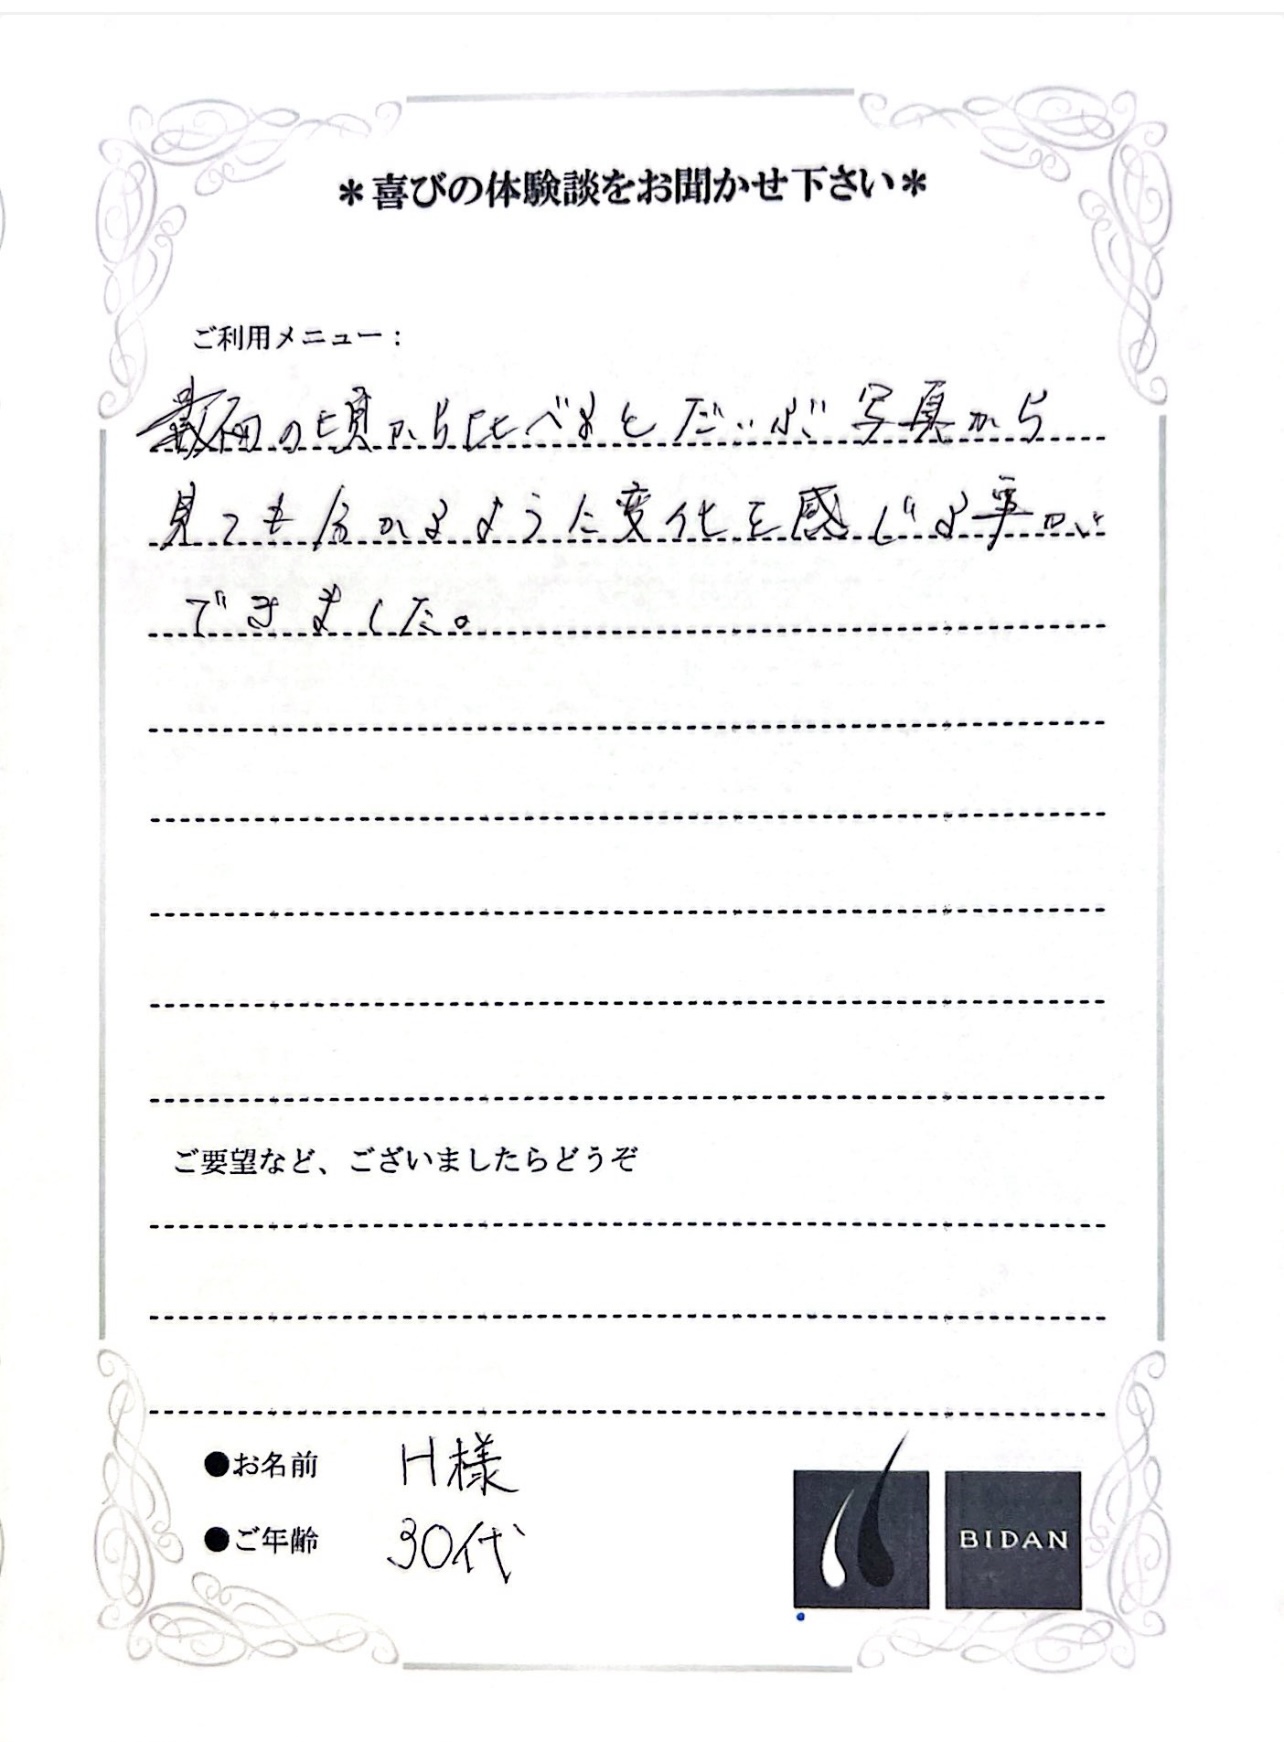 ＊喜びの体験談をお聞かせ下さい＊
ご利用メニュー：
の頃から比べるとだいぶ写真から
見ても分かるように変化を感じる事が
できました。
ご要望など、ございましたらどうぞ
●お名前 H様
●ご年齢 30代
BIDAN